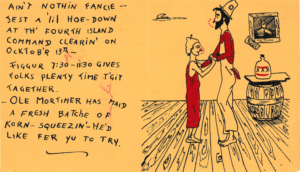 AIN'T NOTHIN FANCIE -
JEST A 'LIL HOE-DOWN
AT TH' FOURTH ISLAND
COMMAND CLEARIN' ON
OCKTOB'R 13TH -
FIGGUR 7:30 - 11:30 GIVES
FOLKS PLENTY TIME T'GIT
TAGETHER.
- OLE MORTIMER HAS MAID
A FRESH BATCHE OF
KORN-SQUEEZIN' - HE'D
LIKE FER YU TO TRY.